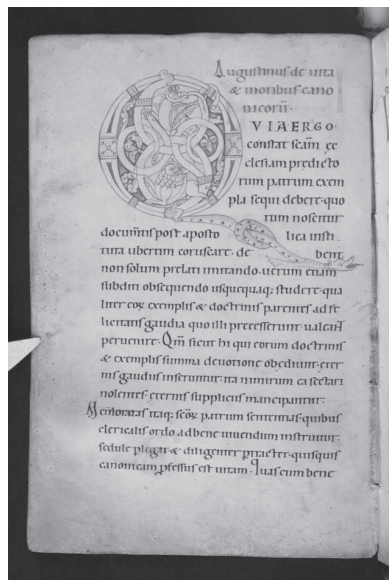 Augustinus de uita
& moribus cano
nicorū·
QUIA ERGO·
constat scām ęc
clesiam predicto
rum patrum exem
pla sequi debere· quo
rum noscitur
documtis post aposto lica insti
tuta ubertim coruscare· de bent
non solum prelati imitando· uerum etiam
subditi obsequendo usquequaq; studere· qua
liter eorꝝ exemplis & doctrinis parentes ad fe
licitatis gaudia quo illi precesserunt· ualeant
peruenire· Qm̄ sicut hi qui eorum doctrinis
& exemplis summa deuotione obediunt· eter
nis gaudiis inseruntur· ita nimirum ea sectari
nolentes· eternis suppliciis mancipantur·
Memoratas itaq; scōrꝝ patrum sententias· quibus
clericalis ordo ad bene uiuendum instruitur·
sedule perlegat· & diligenter ptractet· quisquis
canonicam professus est uitam· Quas cum bene